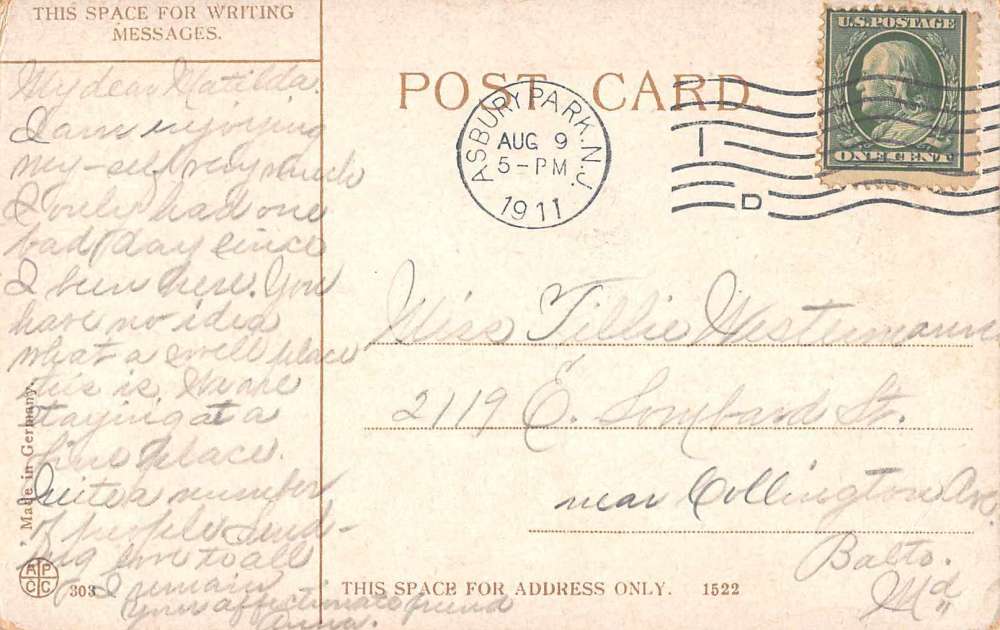 THIS SPACE FOR WRITING
MESSAGES.
My dear Matilda.
I am enjoying
my-self very much
I only had one
bad day since
I been here. You
have no idea
what a swell place
this is. We are
staying at a
fine place.
Quite a number
of people. Send-
ing love to all
I remain
your affectionate friend
Anna.
Made in Germany.
A P
C C
303
POST CARD.
ASBURY PARK. N.J.
AUG 9
5-PM
1911
I
D
U.S. POSTAGE
ONE CENT
Miss Tillie Westermann
2119 E. Lombard St.
near Collington Ave.
Balto.
Md
THIS SPACE FOR ADDRESS ONLY. 1522